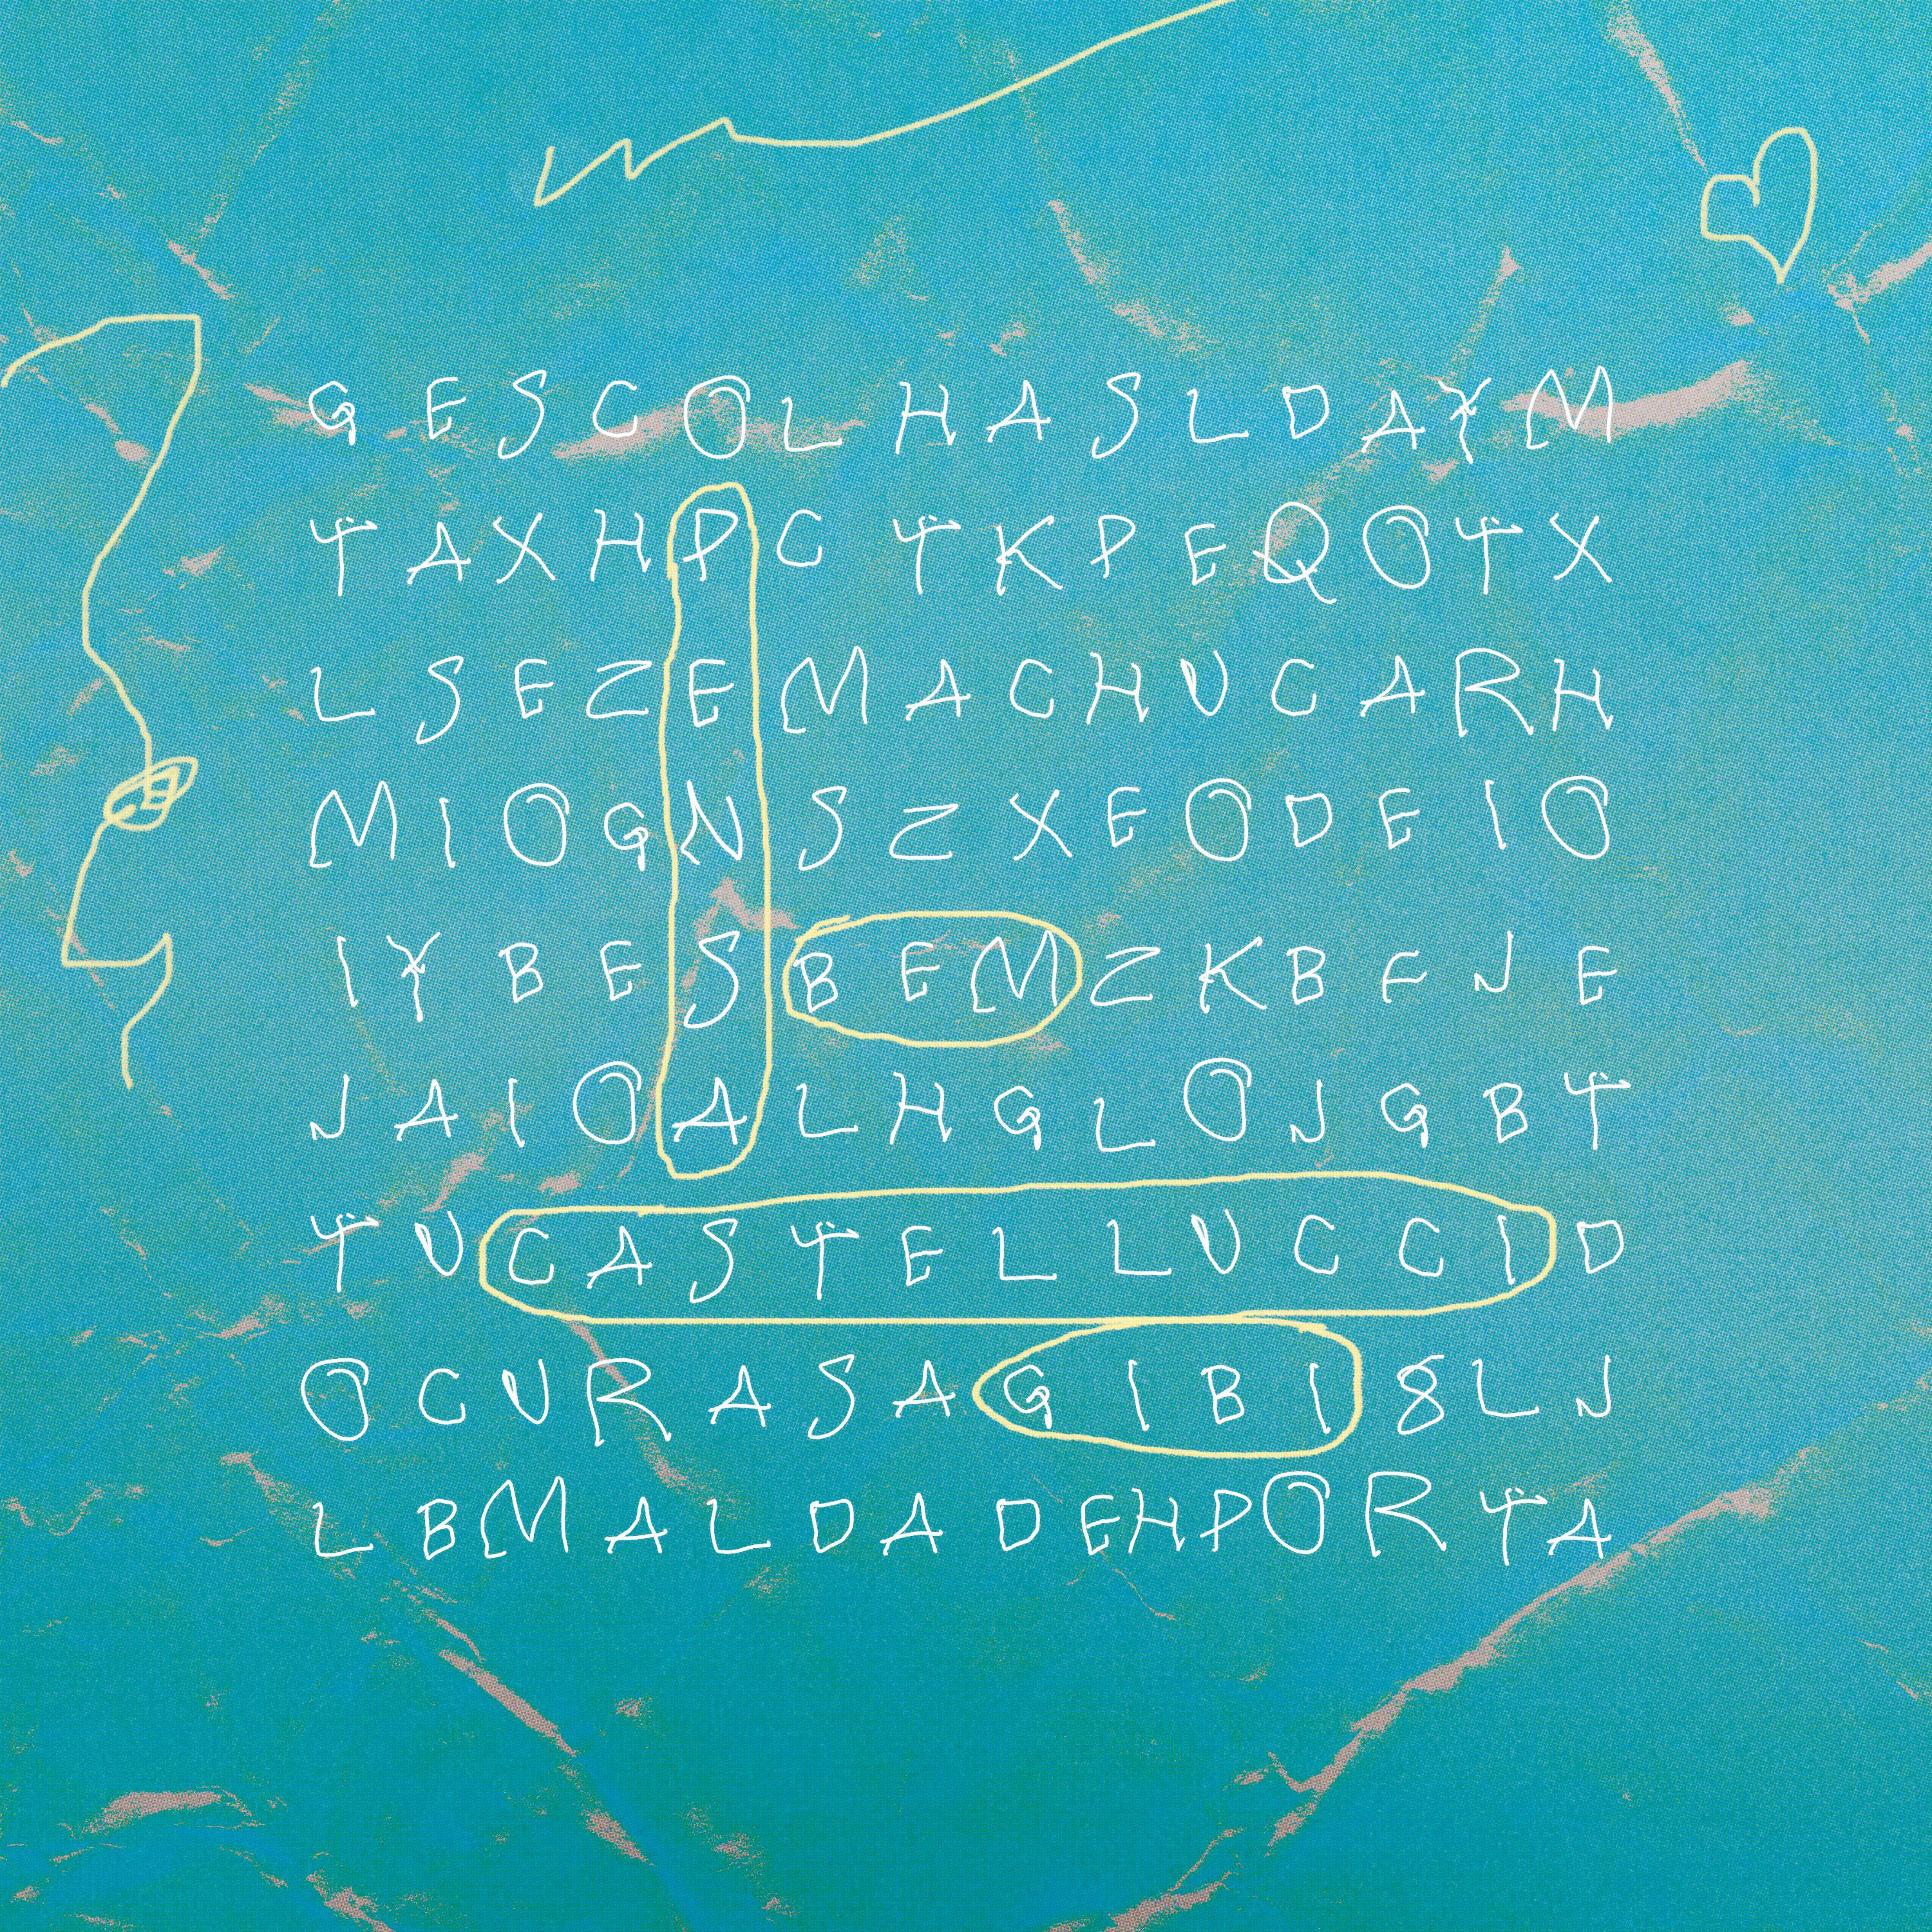 G E S C O L H A S L D A Y M
T A X H P C T K P E Q O T X
L S E Z E M A C H U C A R H
M I O G N S Z X E O D E I O
I Y B E S B E M Z K B F J E
J A I O A L H G L O J G B T
T U C A S T E L L U C C I D
O C U R A S A G I B I 8 L J
L B M A L D A D E H P O R T A